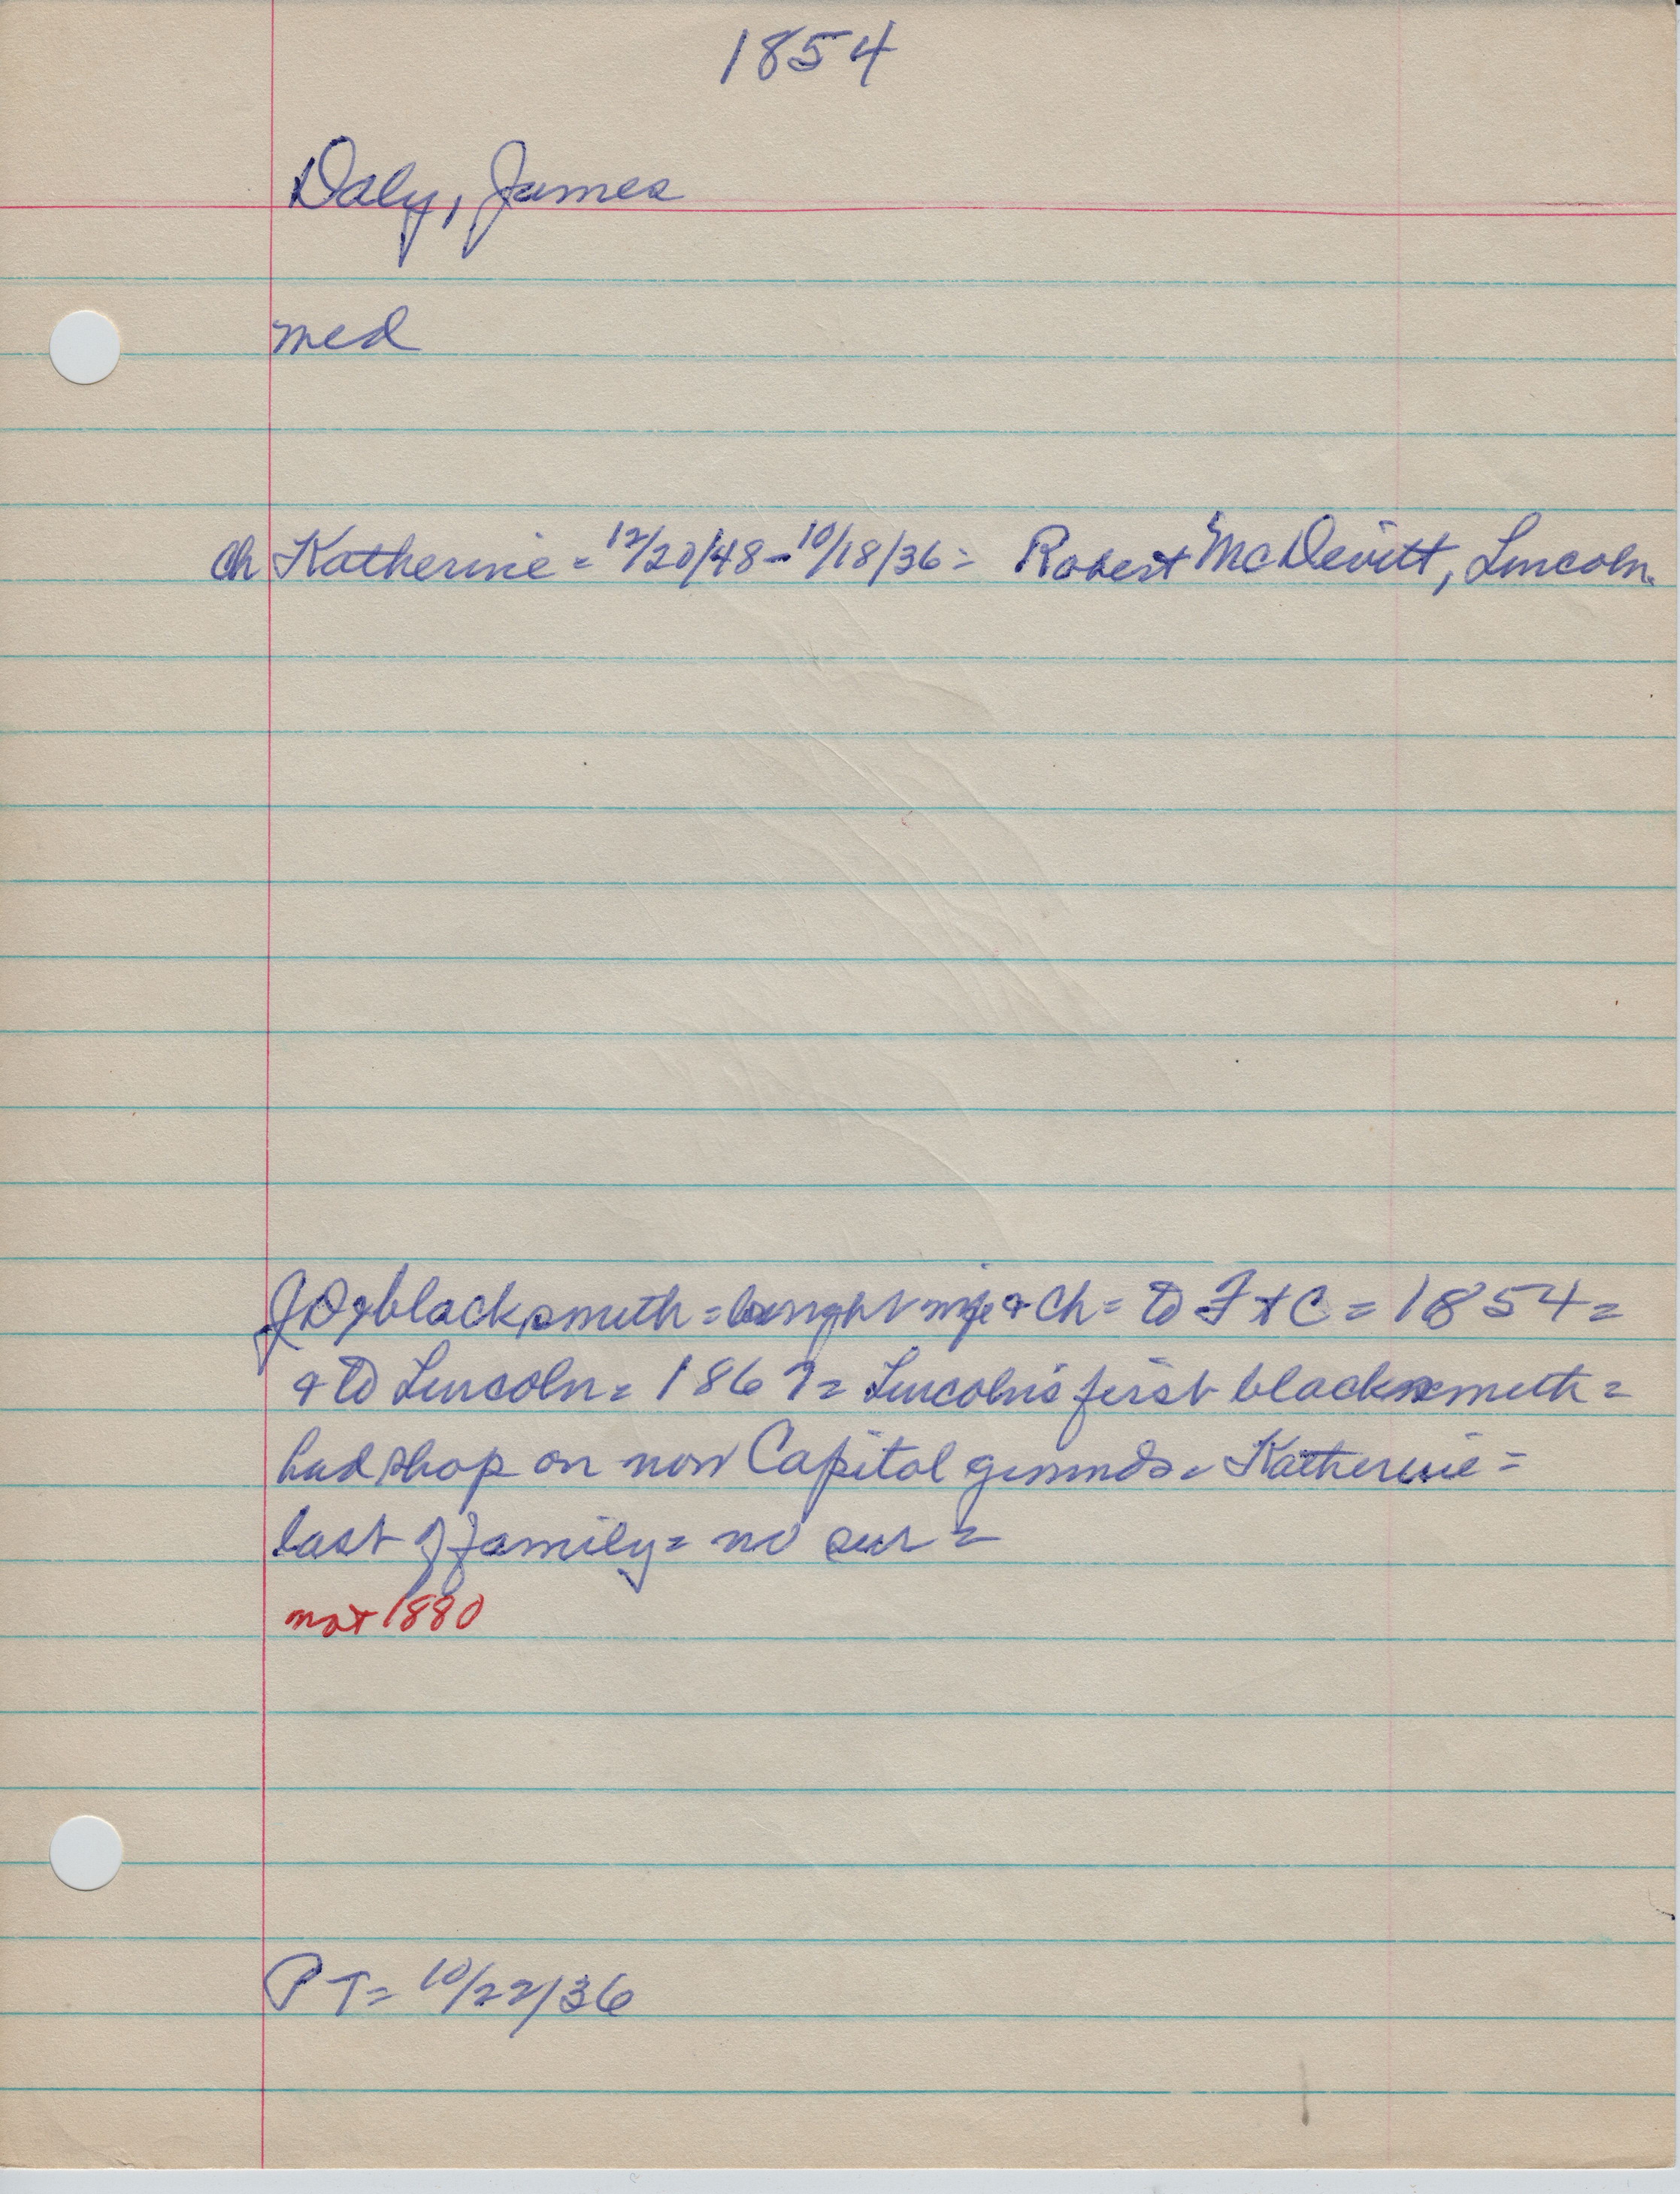 1854
Daly, James
med
ch Katherine = 12/20/48 - 10/18/36 = Robert McDevitt, Lincoln.
JD = blacksmith = brought wife & Ch = to F & C = 1854 =
& to Lincoln = 1867 = Lincoln's first blacksmith =
had shop on now Capitol grounds = Katherine =
last of family = no sur =
not 1880
PT = 10/22/36